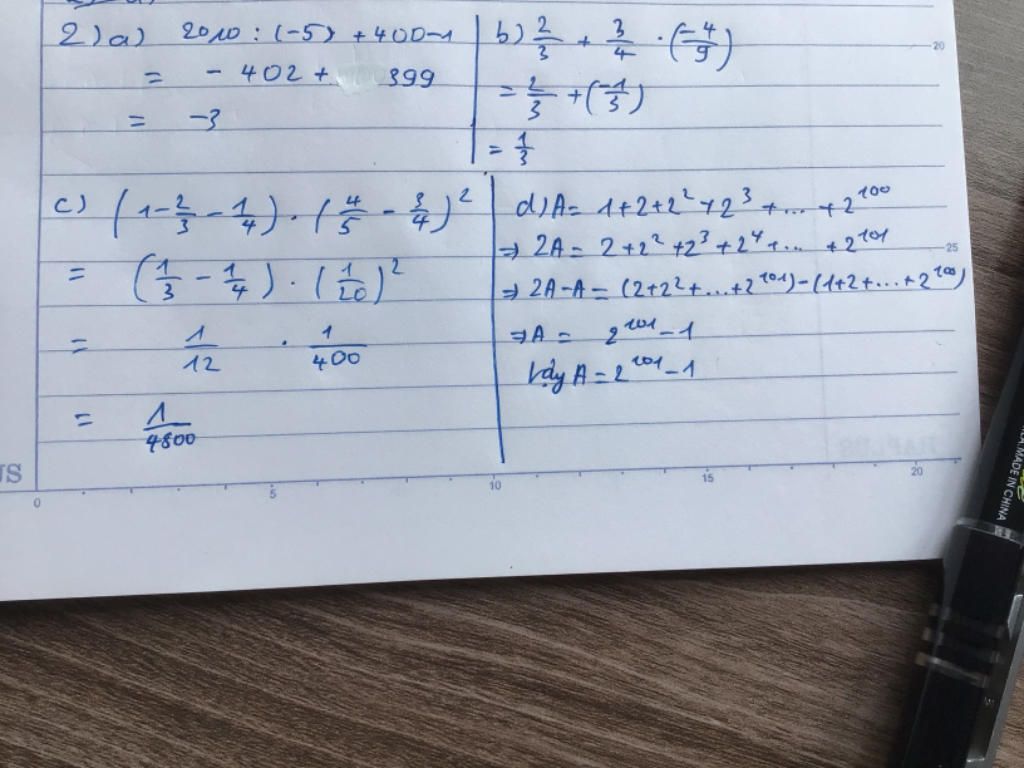 2) a) 2010 : (-5) + 400-1
= - 402 + 399
= -3
b) 2/3 + 3/4 . (-4/9)
= 2/3 + (-1/3)
= 1/3
c) (1 - 2/3 - 1/4) . (4/5 - 3/4)²
= (1/3 - 1/4) . (1/20)²
= 1/12 . 1/400
= 1/4800
d) A = 1 + 2 + 2² + 2³ + ... + 2¹⁰⁰
⇒ 2A = 2 + 2² + 2³ + 2⁴ + ... + 2¹⁰¹
⇒ 2A - A = (2 + 2² + ... + 2¹⁰¹) - (1 + 2 + ... + 2¹⁰⁰)
⇒ A = 2¹⁰¹ - 1
Vậy A = 2¹⁰¹ - 1
20
25
US
0 5 10 15 20
MADE IN CHINA